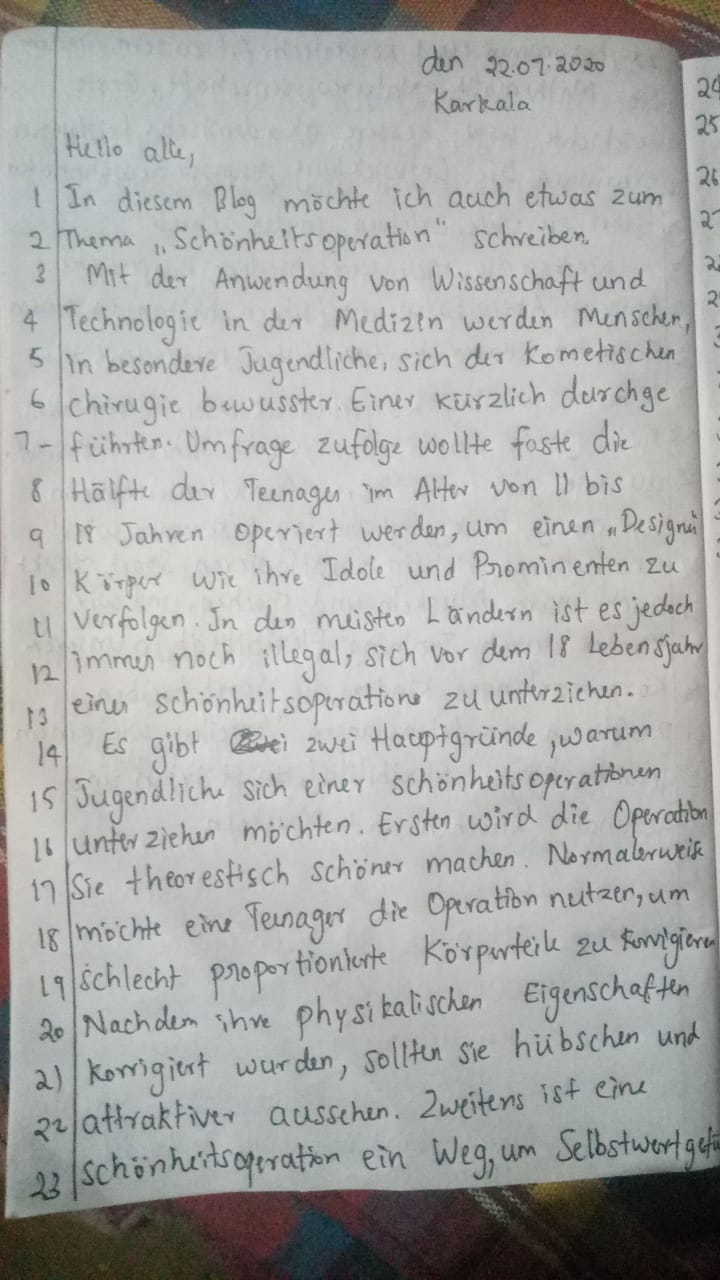 den 22.07.2020
Karkala
Hello alle,
1 In diesem Blog möchte ich auch etwas zum
2 Thema „Schönheitsoperation" schreiben.
3 Mit der Anwendung von Wissenschaft und
4 Technologie in der Medizin werden Menschen,
5 in besondere Jugendliche, sich der Kometischen
6 chirugie bewusster. Einer kürzlich durchge
7- führten. Umfrage zufolge wollte faste die
8 Hälfte der Teenager im Alter von 11 bis
9 18 Jahren operiert werden, um einen „Designer
10 Körper wie ihre Idole und Prominenten zu
11 verfolgen. In den meisten Ländern ist es jedoch
12 immer noch illegal, sich vor dem 18 Lebensjahr
13 einer schönheitsoperations zu unterziehen.
14 Es gibt zwei Hauptgründe, warum
15 Jugendliche sich einer schönheitsoperationen
16 unterziehen möchten. Ersten wird die Operation
17 Sie theorestisch schöner machen. Normalerweise
18 möchte eine Teenager die Operation nutzen, um
19 schlecht proportionierte Körperteile zu korrigieren
20 Nachdem ihre physikalischen Eigenschaften
21 korrigiert wurden, sollten sie hübschen und
22 attraktiver aussehen. Zweitens ist eine
23 schönheitsoperation ein Weg, um Selbstwertgefü
24
25
26
27